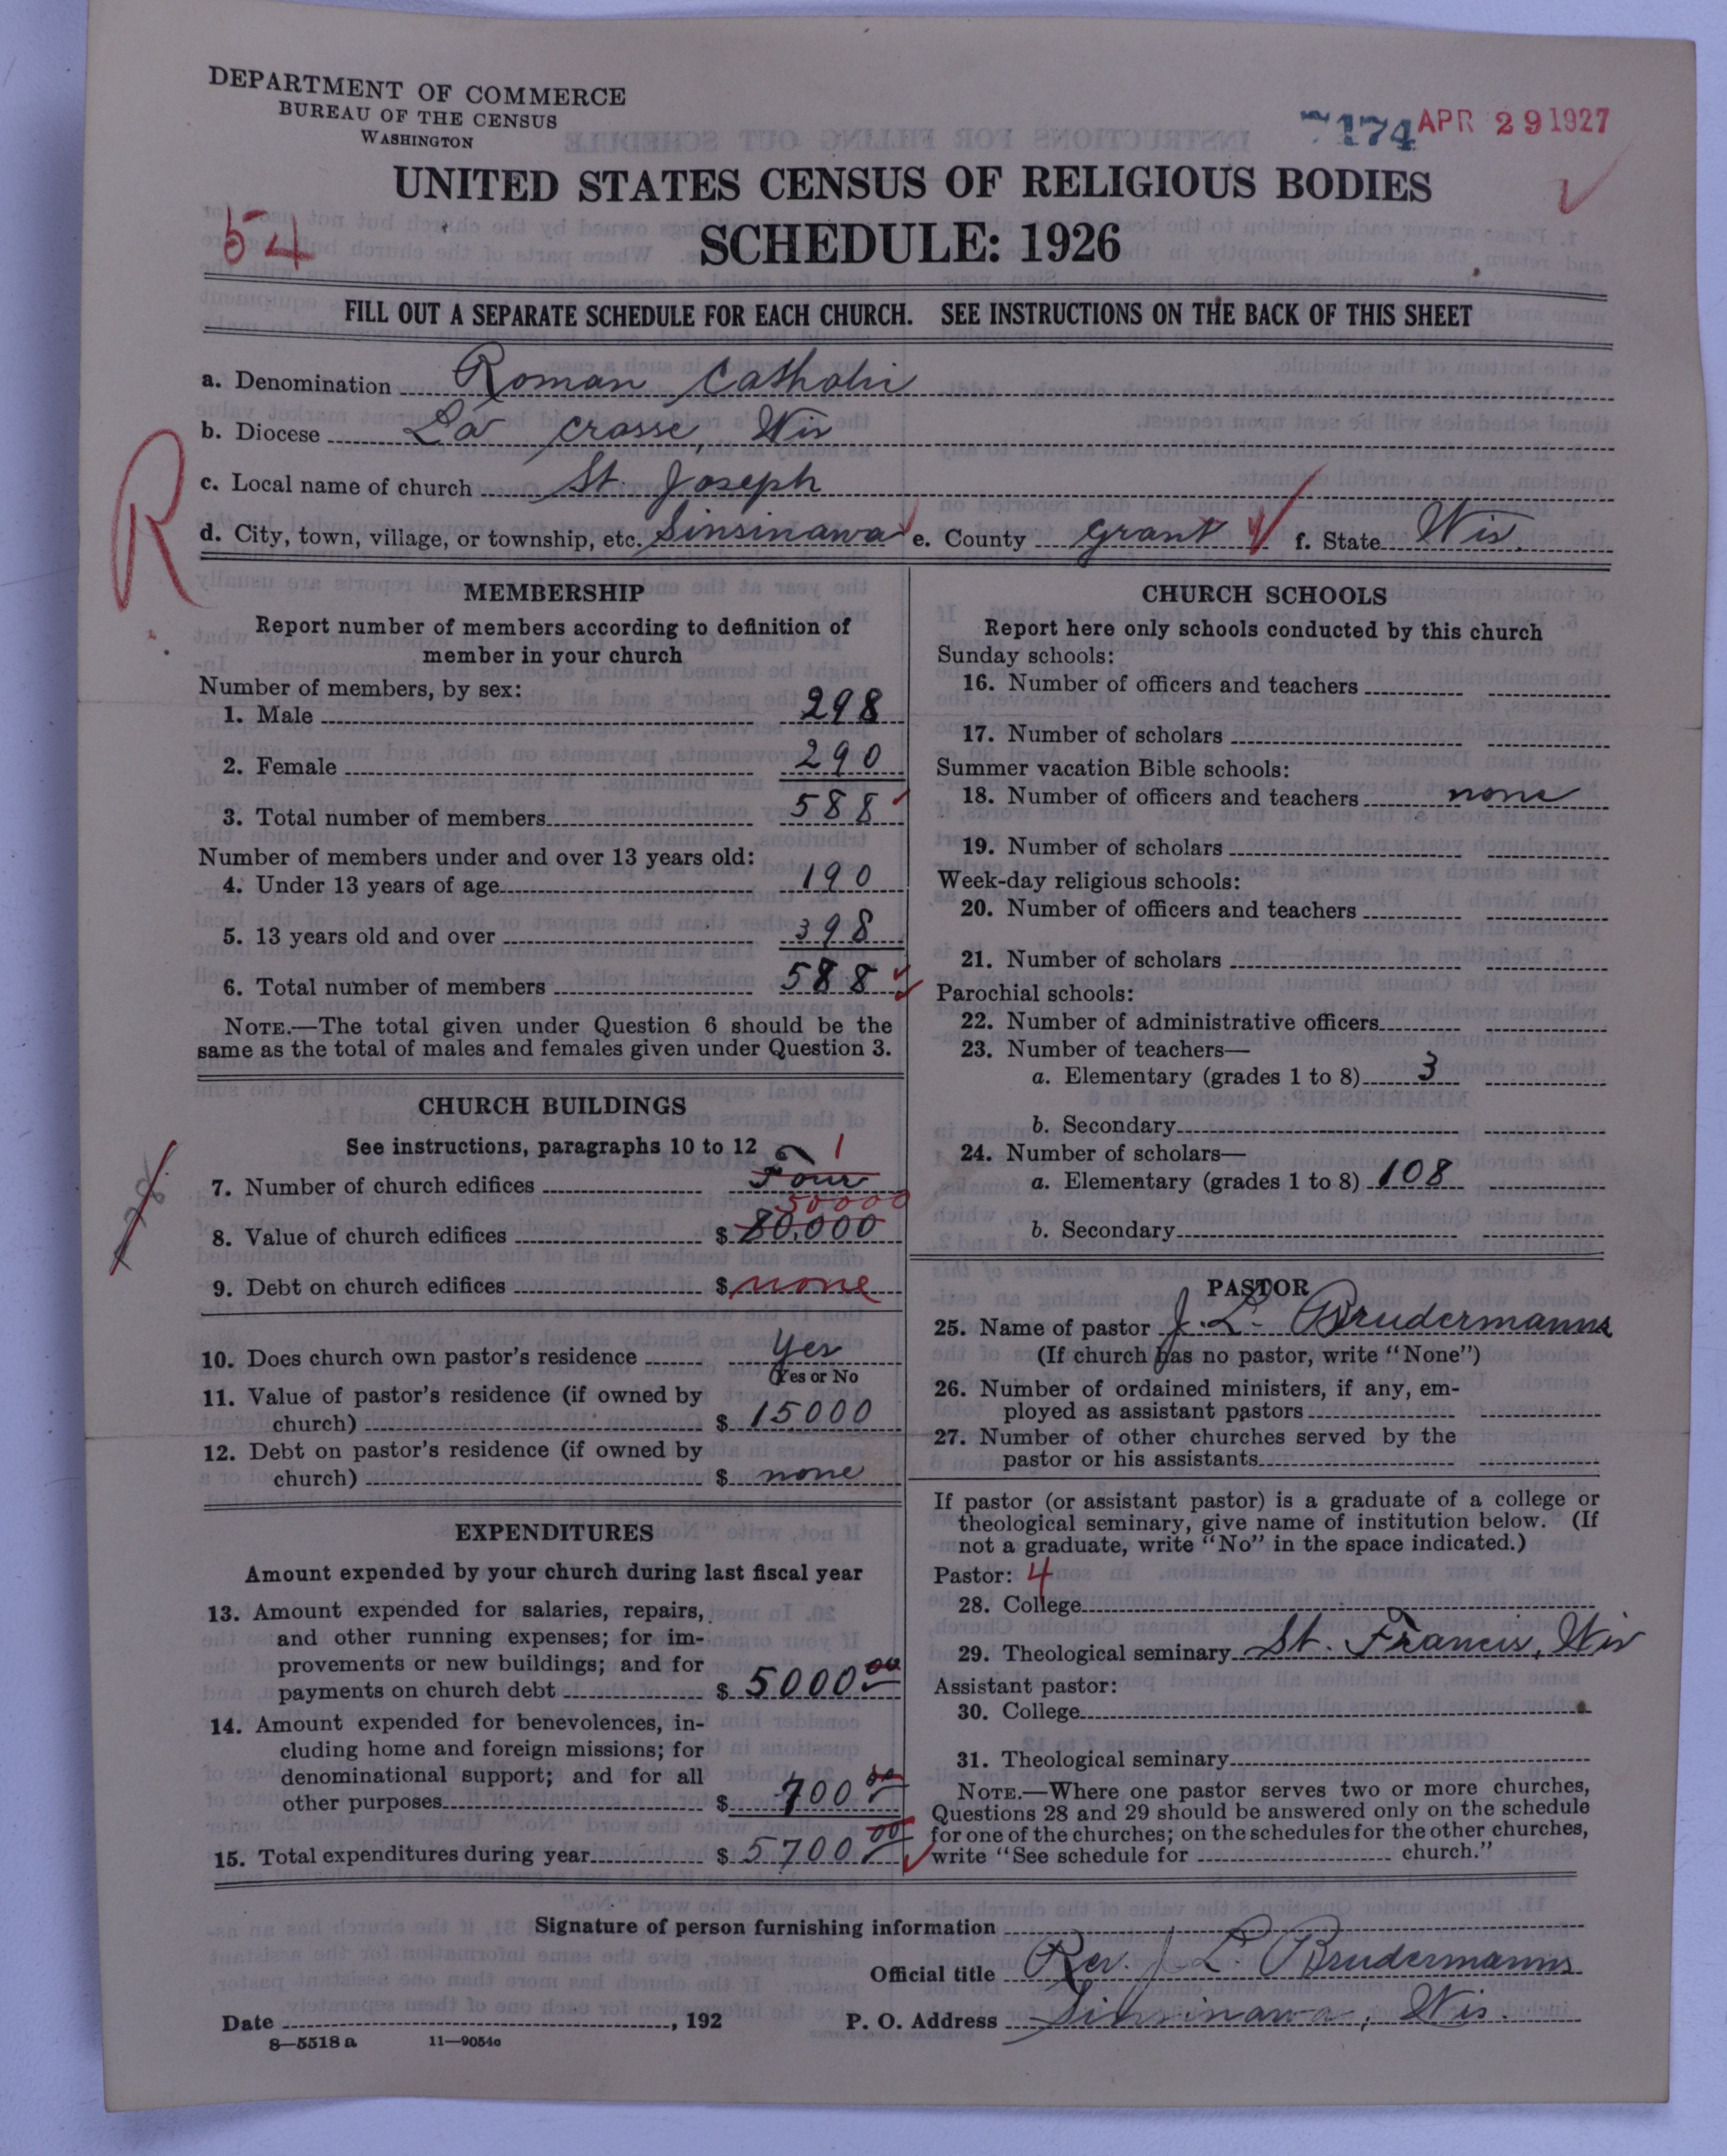 DEPARTMENT OF COMMERCE
BUREAU OF THE CENSUS
WASHINGTON
7174 APR 29 1927
UNITED STATES CENSUS OF RELIGIOUS BODIES
54
SCHEDULE: 1926
FILL OUT A SEPARATE SCHEDULE FOR EACH CHURCH. SEE INSTRUCTIONS ON THE BACK OF THIS SHEET
a. Denomination Roman Catholic
b. Diocese La Crosse, Wis
c. Local name of church St. Joseph
d. City, town, village, or township, etc. Sinsinawa e. County Grant f. State Wis.
R
MEMBERSHIP
Report number of members according to definition of
member in your church
Number of members, by sex:
1. Male 298
2. Female 290
3. Total number of members 588
Number of members under and over 13 years old:
4. Under 13 years of age 190
5. 13 years old and over 398
6. Total number of members 588
NOTE.—The total given under Question 6 should be the
same as the total of males and females given under Question 3.
CHURCH BUILDINGS
See instructions, paragraphs 10 to 12
1
7. Number of church edifices Four
50000
8. Value of church edifices $ 80,000
9. Debt on church edifices $ none
10. Does church own pastor's residence Yes
Yes or No
11. Value of pastor's residence (if owned by
church) $ 15000
12. Debt on pastor's residence (if owned by
church) $ none
EXPENDITURES
Amount expended by your church during last fiscal year
13. Amount expended for salaries, repairs,
and other running expenses; for im-
provements or new buildings; and for
payments on church debt $ 5000 00
14. Amount expended for benevolences, in-
cluding home and foreign missions; for
denominational support; and for all
other purposes $ 700 00
15. Total expenditures during year $ 5700 00
CHURCH SCHOOLS
Report here only schools conducted by this church
Sunday schools:
16. Number of officers and teachers
17. Number of scholars
Summer vacation Bible schools:
18. Number of officers and teachers none
19. Number of scholars
Week-day religious schools:
20. Number of officers and teachers
21. Number of scholars
Parochial schools:
22. Number of administrative officers
23. Number of teachers—
a. Elementary (grades 1 to 8) 3
b. Secondary
24. Number of scholars—
a. Elementary (grades 1 to 8) 108
b. Secondary
PASTOR
25. Name of pastor J. L. Brudermanns
(If church has no pastor, write "None")
26. Number of ordained ministers, if any, em-
ployed as assistant pastors
27. Number of other churches served by the
pastor or his assistants
If pastor (or assistant pastor) is a graduate of a college or
theological seminary, give name of institution below. (If
not a graduate, write "No" in the space indicated.)
Pastor: 4
28. College
29. Theological seminary St. Francis, Wis
Assistant pastor:
30. College
31. Theological seminary
NOTE.—Where one pastor serves two or more churches,
Questions 28 and 29 should be answered only on the schedule
for one of the churches; on the schedules for the other churches,
write "See schedule for church."
Signature of person furnishing information
Official title Rev. J. L. Brudermanns
Date , 192 P. O. Address Sinsinawa, Wis.
8—5518 a 11—9054c